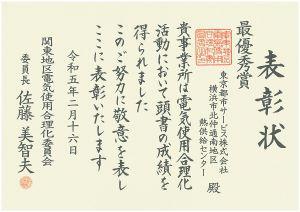 表彰状
最優秀賞
東京都市サービス株式会社
横浜市北仲通南地区
熱供給センター 殿
貴事業所は電気使用合理化
活動において頭書の成績を
得られました
このご努力に敬意を表し
ここに表彰いたします
令和五年二月十六日
関東地区電気使用合理化委員会
委員長 佐藤美智夫